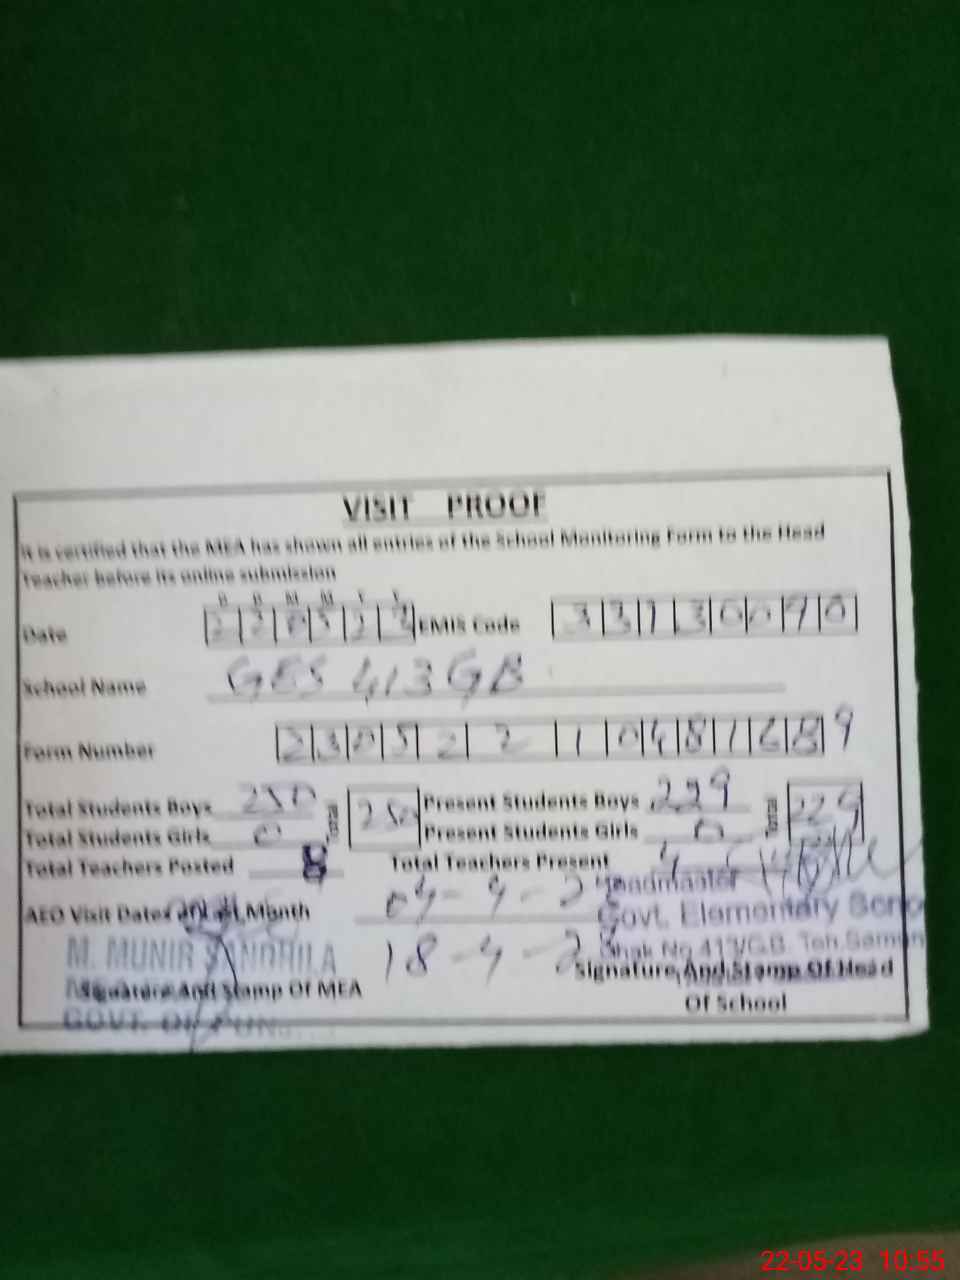 VISIT PROOF
It is certified that the MEA has shown all entries of the School Monitoring Form to the Head
Teacher before its online submission
D D M M Y Y
Date 220523 EMIS Code 33130090
School Name GES 413 GB
Form Number 230522 1048168 9
Total Students Boys 250 Total 250 Present Students Boys 229 Total 229
Total Students Girls 0 Present Students Girls 0
Total Teachers Posted 8 Total Teachers Present
Headmaster
AEO Visit Dates of Last Month 04-4-2
Govt. Elementary
M. MUNIR 18-4-2
Chak No.413/GB. Teh.
Signature And Stamp Of MEA
Signature And Stamp Of Head
Of School
GOVT. OF
22-05-23 10:55